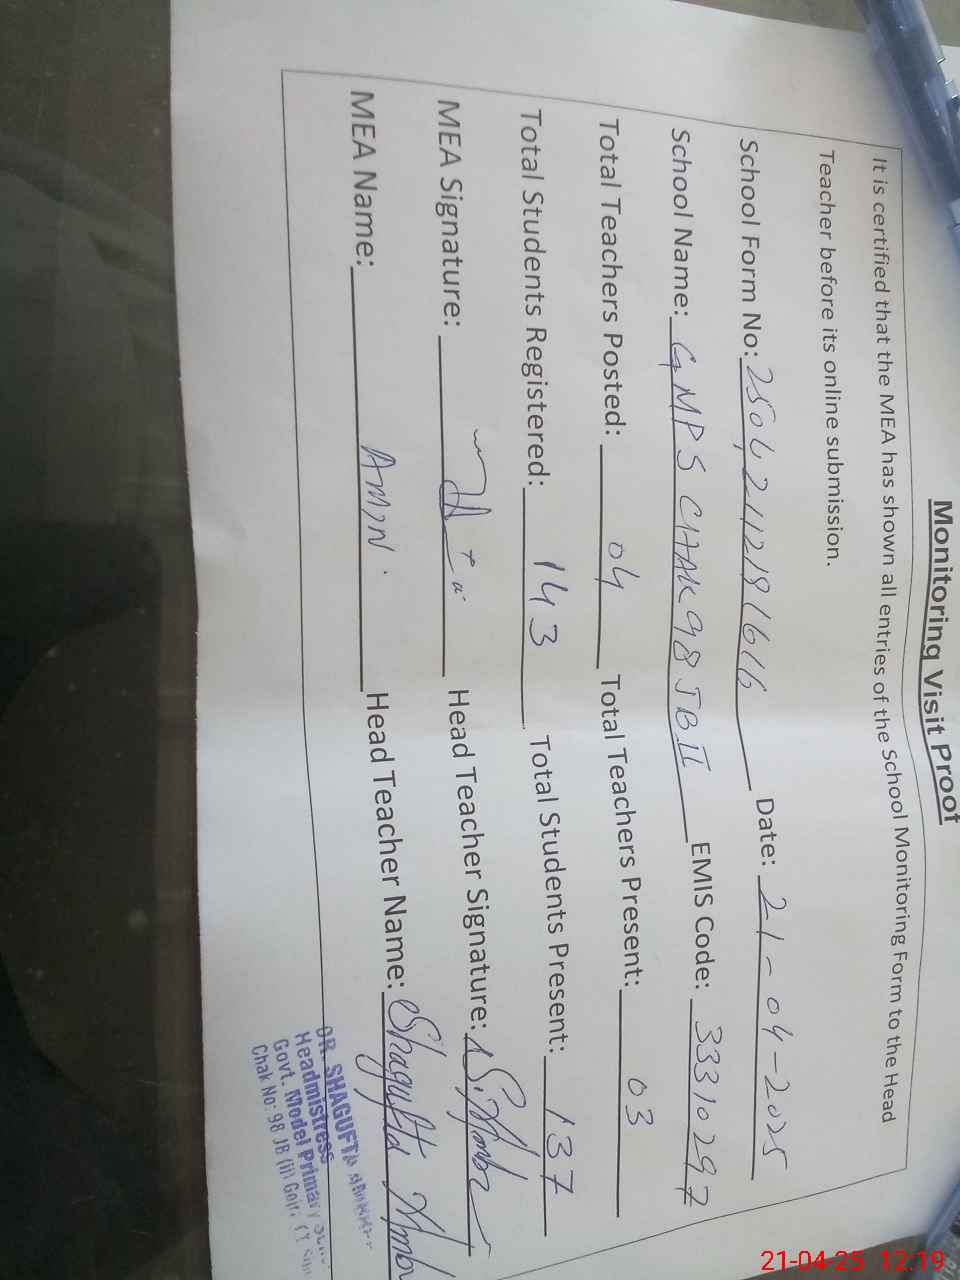 Monitoring Visit Proof
It is certified that the MEA has shown all entries of the School Monitoring Form to the Head
Teacher before its online submission.
School Form No: 25042112191616 Date: 21-04-2025
School Name: GMPS CHAK 98 JB II EMIS Code: 33310297
Total Teachers Posted: 04 Total Teachers Present: 03
Total Students Registered: 143 Total Students Present: 137
MEA Signature: Head Teacher Signature:
MEA Name: AMIN. Head Teacher Name: Shagufta
DR. SHAGUFTA
Headmistress
Govt. Model Primary
Chak No: 98 JB (ii) Gojra
21-04-25 12:19